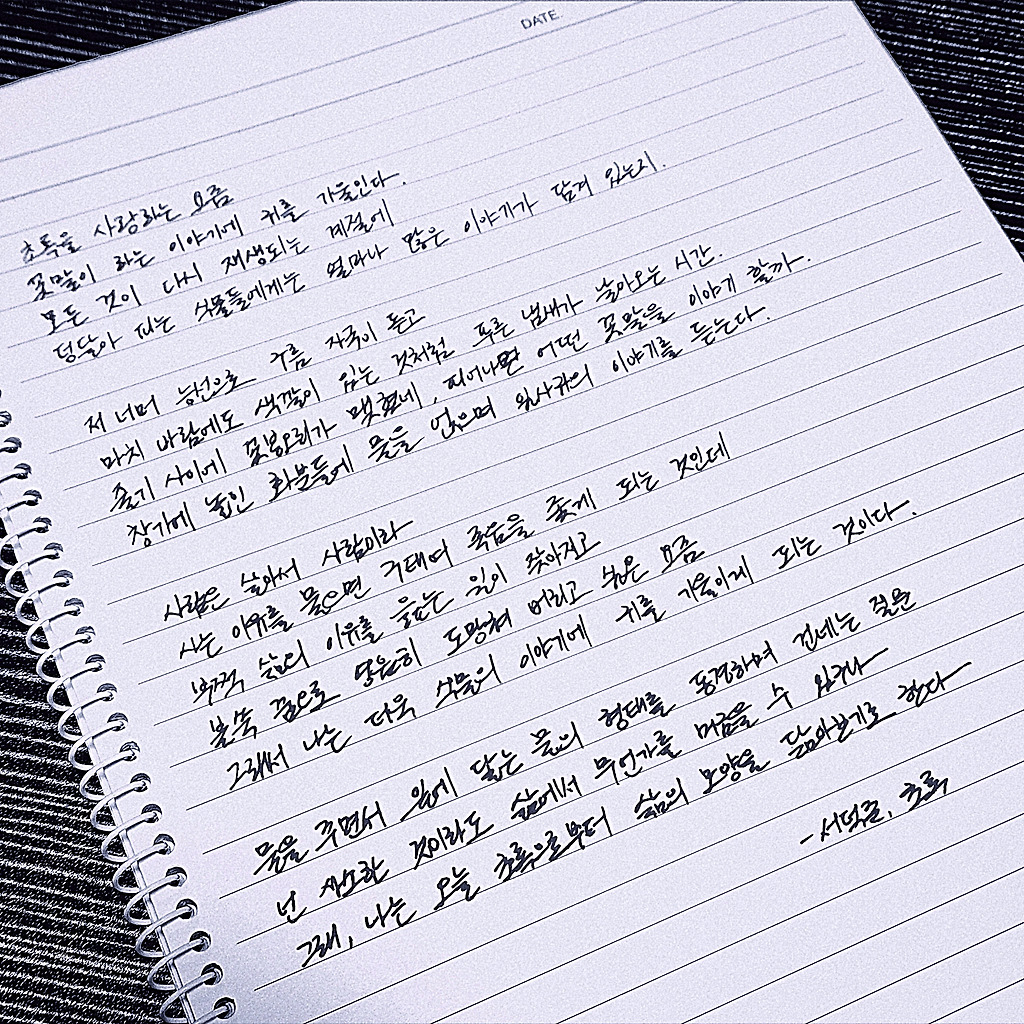 DATE.
초록을 사랑하는 요즘
꽃말이 하는 이야기에 귀를 기울인다.
모든 것이 다시 재생되는 계절에
덩달아 피는 식물들에게는 얼마나 많은 이야기가 담겨 있는지.
저 너머 능선으로 구름 자국이 돋고
마치 바람에도 색깔이 있는 것처럼 푸른 냄새가 날아오는 시간.
줄기 사이에 꽃봉오리가 맺혔네, 피어나면 어떤 꽃말을 이야기 할까.
창가에 놓인 화분들에 물을 얹으며 잎사귀의 이야기를 듣는다.
사람은 살아서 사람이라
사는 이유를 물으면 구태여 죽음을 좇게 되는 것인데
부쩍 삶의 이유를 묻는 일이 잦아지고
불쑥 끝으로 당연히 도망쳐 버리고 싶은 요즘
그래서 나는 더욱 식물의 이야기에 귀를 기울이게 되는 것이다.
물을 주면서 잎에 닿는 물의 형태를 동경하며 건네는 질문
넌 사소한 것이라도 삶에서 무언가를 머금을 수 있구나
그래, 나는 오늘 초록으로부터 삶의 모양을 닮아보기로 한다
-서덕준, 초록